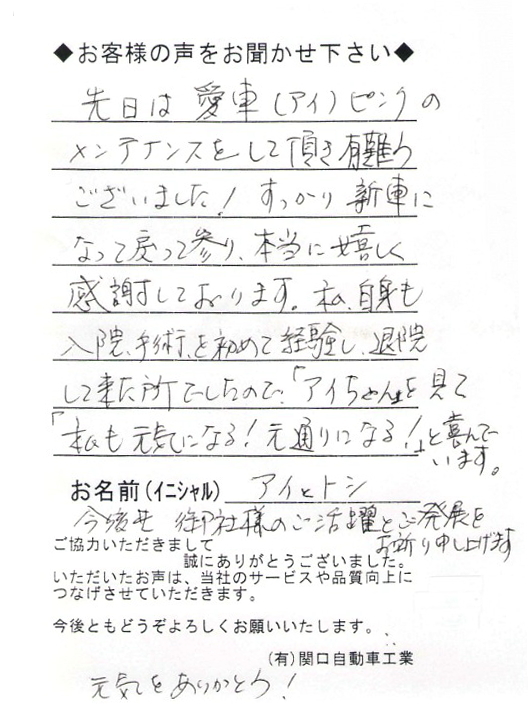 ◆お客様の声をお聞かせ下さい◆
先日は 愛車(アイ)ピンクの
メンテナンスをして頂き有難う
ございました! すっかり 新車に
なって戻って参り、本当に嬉しく
感謝しております。私、自身も
入院、手術、を初めて経験し、退院
して来た所でしたので、「アイちゃん」を見て
「私も元気になる!元通りになる!」と喜んで
います。
お名前(イニシャル) アイとトシ
今後共 御社様のご活躍とご発展を
お祈り申し上げます
ご協力いただきまして
誠にありがとうございました。
いただいたお声は、当社のサービスや品質向上に
つなげさせていただきます。
今後ともどうぞよろしくお願いいたします。
(有)関口自動車工業
元気をありがとう!